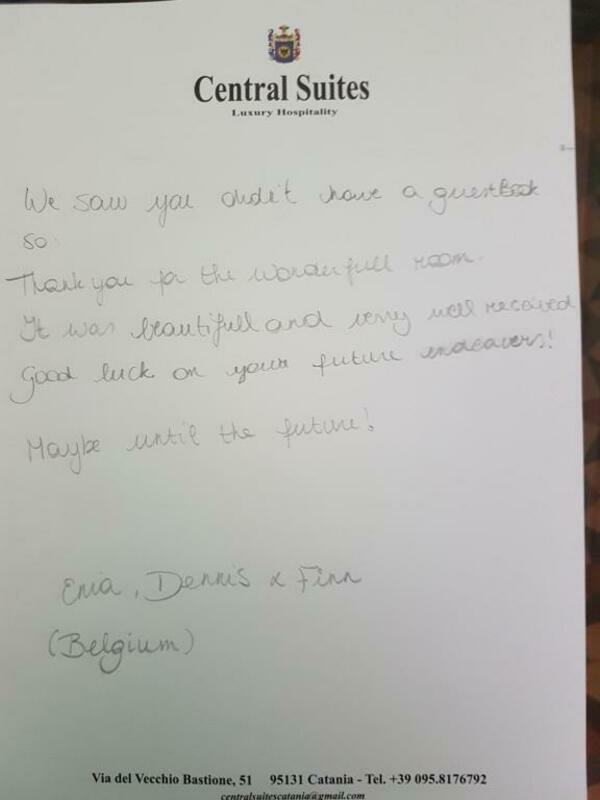 Central Suites
Luxury Hospitality
We saw you didn't have a guestBook
so:
Thank you for the wonderfull room.
It was beautifull and very well received
Good luck on your future endeavers!
Maybe until the future!
Enia, Dennis & Finn
(Belgium)
Via del Vecchio Bastione, 51 95131 Catania - Tel. +39 095.8176792
centralsuitescatania@gmail.com